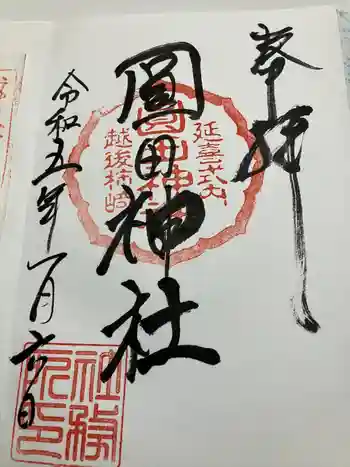 奉拝
延喜式内
圓田神社
越後柿崎
令和五年一月六日
社務
所印